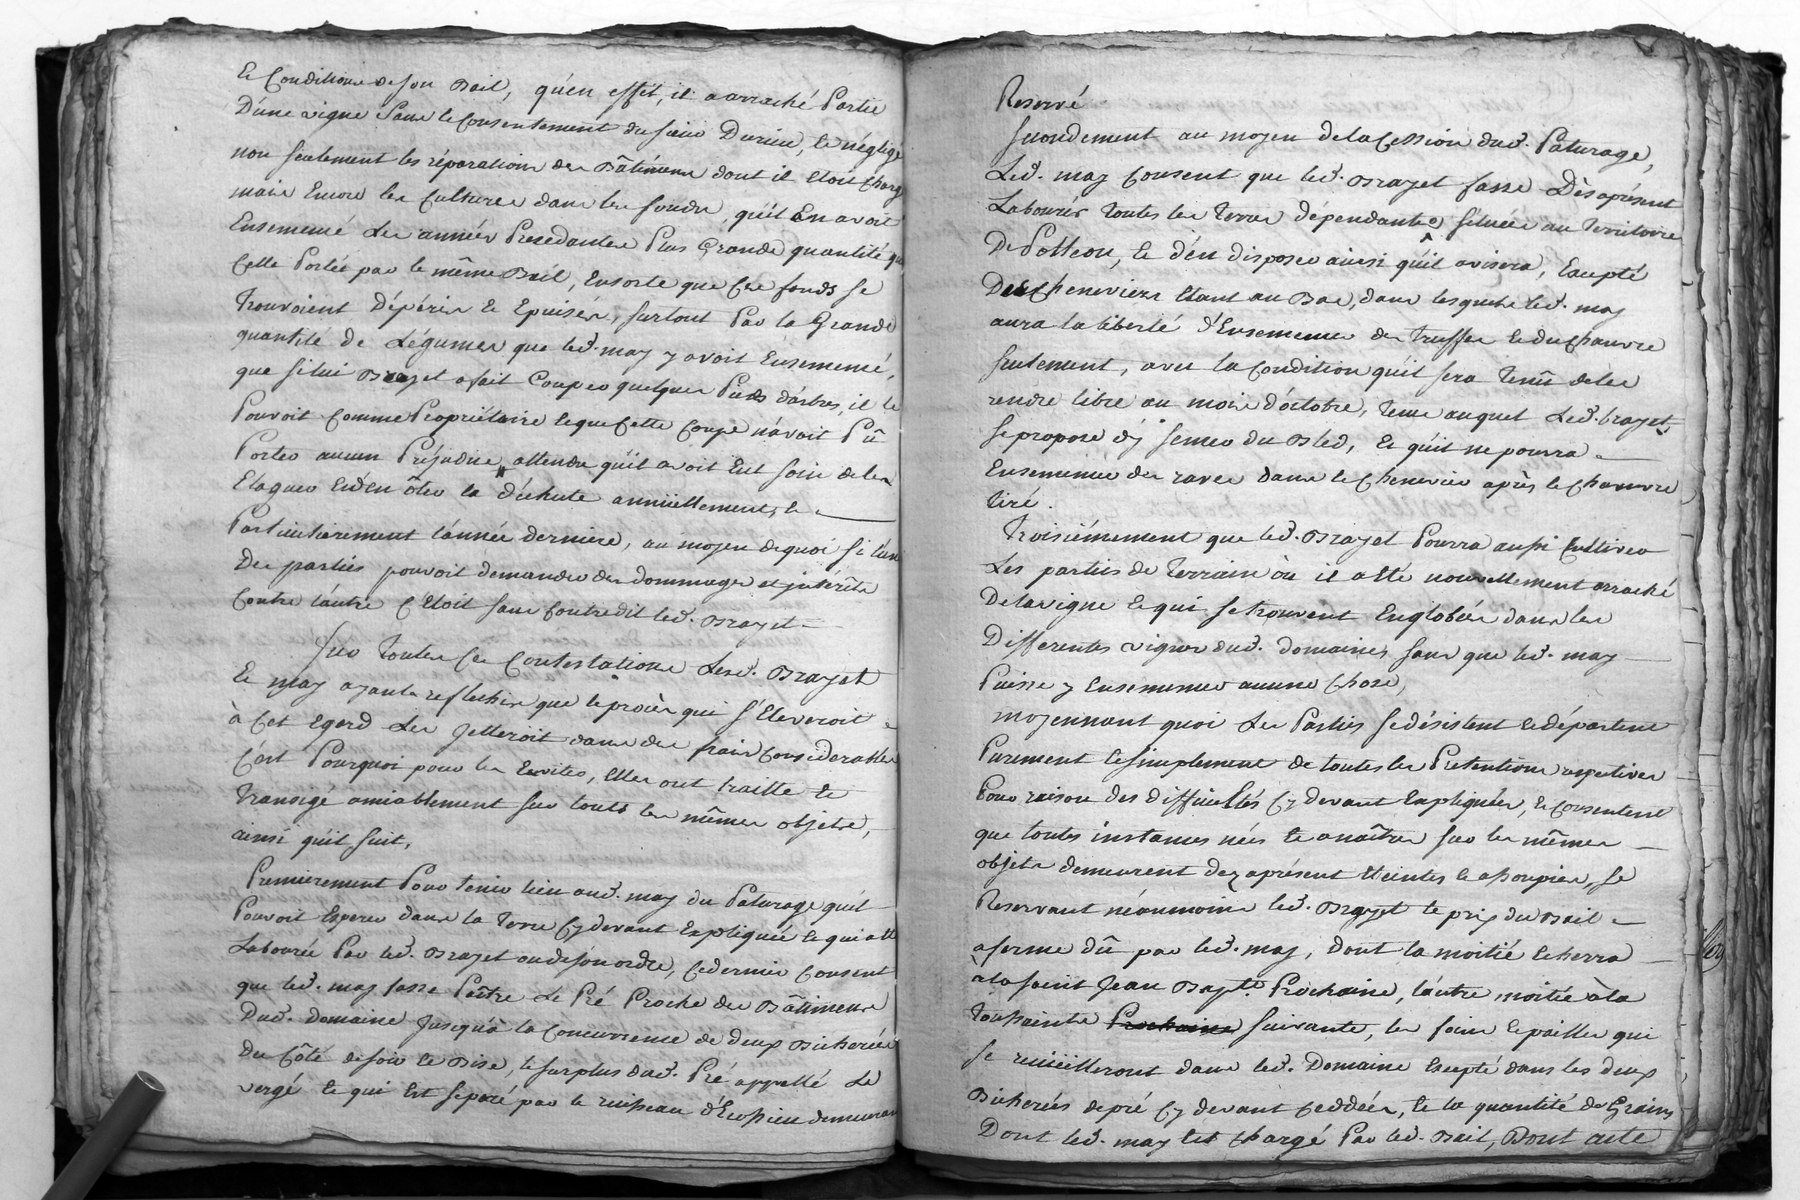 Et Conditions de son Bail, qu'en effet, il a arraché Partie
D'une vigne Sans le Consentement du sieur Durieu, et négligé
non seulement les réparations des Bâtimens dont il etoit Charg
mais Encore les Cultures dans les fonds, qu'il En avoit
Ensemencé Les années Precedantes Plus Grande quantité que
Celle Portée par le même Bail, Ensorte que Ces fonds se
trouvoient Dépéris et Epuisés, surtout Par la Grande
quantité de Légumes que led. may y avoit Ensemencé,
que si lui Brazet a fait Couper quelques Pieds d'arbres, il le
Pouvoit Comme Propriétaire et que Cette Coupe n'avoit Pû
Porter aucun Préjudice, attendu qu'il avoit Eut soin de les
Elaguer Et d'en ôter la déchute annüellement, et
Particulierement l'année derniere, au moyen de quoi si l'une
Des parties pouvoit demander des dommages et intérêts
Contre l'autre C'Etoit sans Contredit led. Brazet
Sur Toutes Ces Contestations Lesd. Brazet
Et may ayants reflechis que le procès qui S'Eleveroit
à Cet Egard Les Jetteroit dans des frais Considerables
C'est Pourquoi pour les Eviter, Elles ont traitté et
Transigé amiablement sur touts les mêmes objets,
ainsi qu'il suit,
Premierement Pour tenir lieu aud. may du Paturage qu'il
Pouvoit Esperer dans la Terre Cy devant Expliquée et qui a été
Labourée Par led. Brazet ou de son ordre, Ce dernier Consent
que led. may fasse Paître Le Pré Proche des Bâtimens
Dud. domaine Jusqu'à la Concurrence de deux Bicherées
Du Côté de soir et Bise, le surplus dud. Pré appellé Le
vergé et qui Est Separé par le ruisseau d'Ecossieu demeurant
Reservé
Secondement au moyen de la Cession dud. Paturage,
Led. may Consent que led. Brazet fasse Dès aprésent
Labourér toutes les terres dépendantes situées au territoire
De Potteou, et d'en disposer ainsi qu'il avisera, Excepté
Des Chenevières Etant au Bas, dans lesquels led. may
aura la liberté d'Ensemencer des truffes et du Chanvre
seulement, avec la Condition qu'il sera Tenû de les
rendre libre au mois d'octobre, Tems auquel Led. brazet
se propose d'y semer du Bled, Et qu'il ne pourra
Ensemencer des raves dans le Chenevier après le Chanvre
tiré.
Troisiémement que led. Brazet Pourra aussi Cultiver
Les parties de terrain où il a été nouvellement arraché
De la vigne et qui se trouvent Englobées dans les
Differentes vignes dud. domaines sans que led. may
Puisse y Ensemencer aucune Chose,
moyennant quoi Les Parties se désistent et départent
Purement et simplement de toutes les Prétentions respectives
Pour raison des difficultés Cy devant Expliquées, et Consentent
que toutes instances nées et a naître sur les mêmes
objets demeurent dez aprésent Eteintes et assoupies, se
Reservant néanmoins led. Brazet le prix du Bail
a ferme dû par led. may, Dont la moitié Echerra
à la saint Jean Bapte. Prochaine, l'autre moitié à la
Toussaints Prochaine suivante, les foins et pailles qui
se recüeilleront dans led. Domaine Excepté dans les deux
Bicherées de pré Cy devant Ceddées, et la quantité de Grains
Dont led. may Est Chargé Par led. Bail, Dont acte